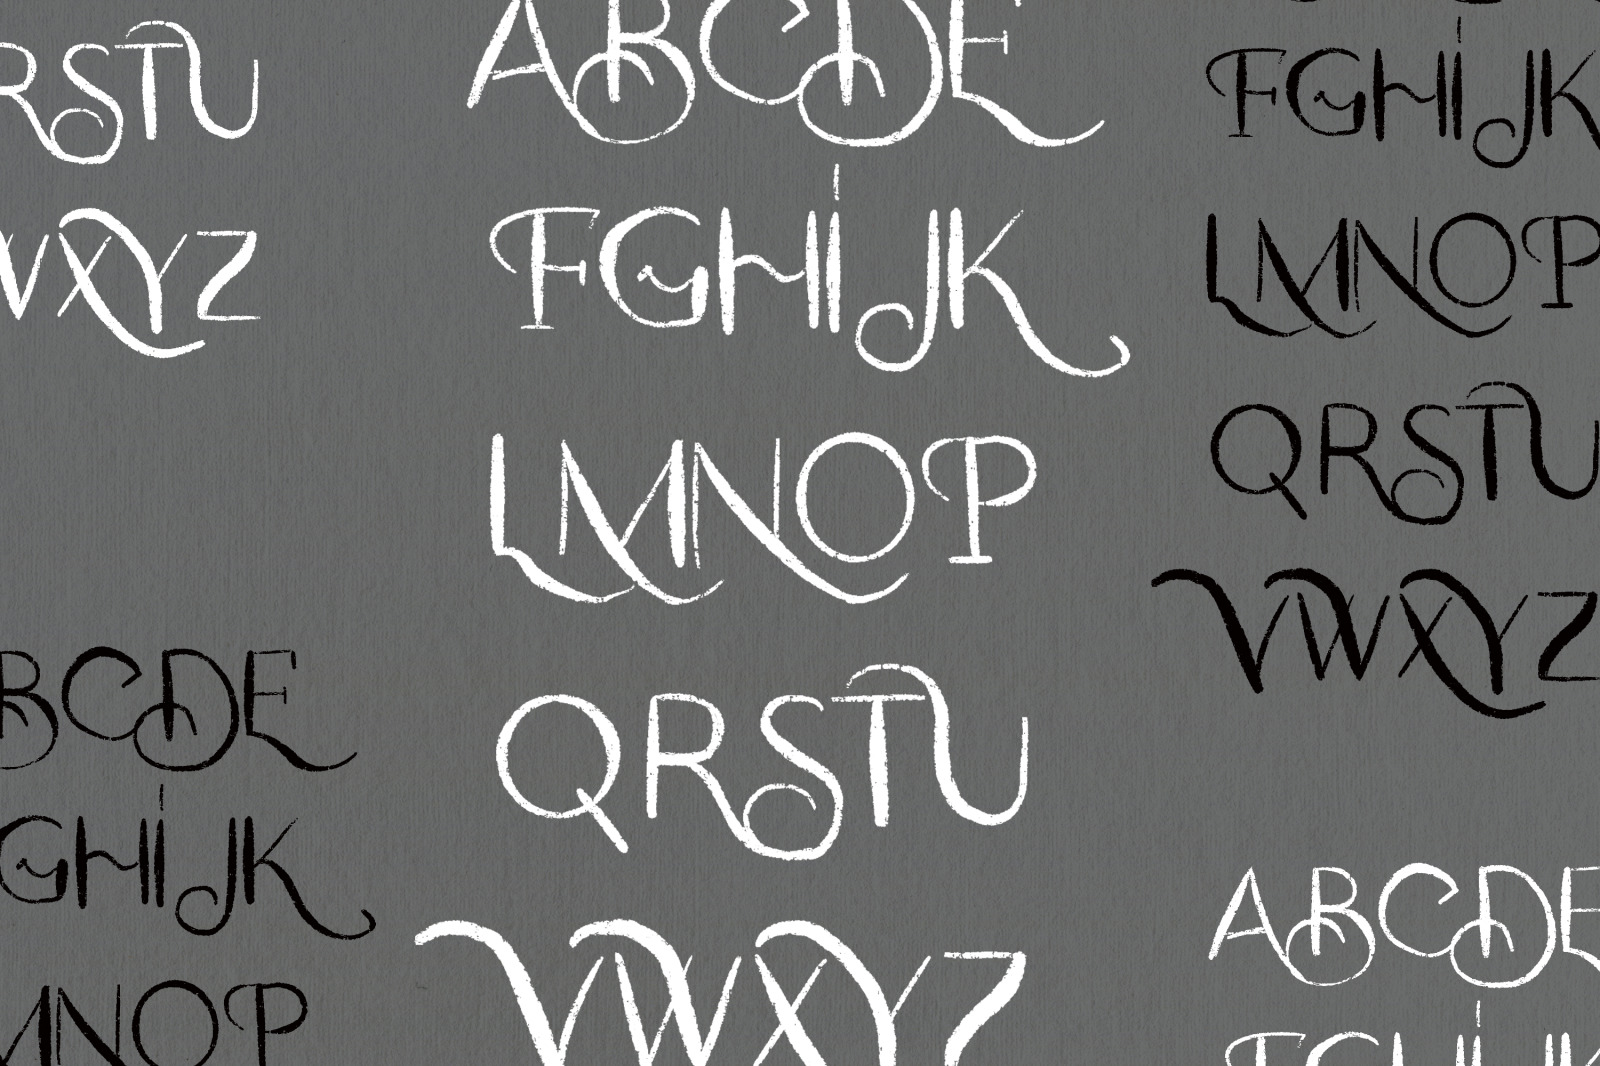 RSTU
VWXYZ
BCDE
GHIJK
MNOP
ABCDE
FGHIJK
LMNOP
QRSTU
VWXYZ
FGHIJK
LMNOP
QRSTU
VWXYZ
ABCDE
FGHIJK